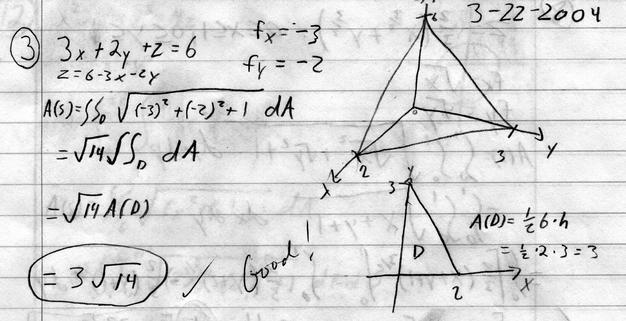 3-22-2004
③ 3x + 2y + z = 6
z = 6-3x-2y
fx = -3
fy = -2
A(S) = ∫∫D √(-3)² + (-2)² + 1 dA
= √14 ∫∫D dA
= √14 A(D)
= 3√14 ✓ Good!
6
2
3
X
Y
0
3
Y
D
2
X
A(D) = ½ b·h
= ½·2·3 = 3